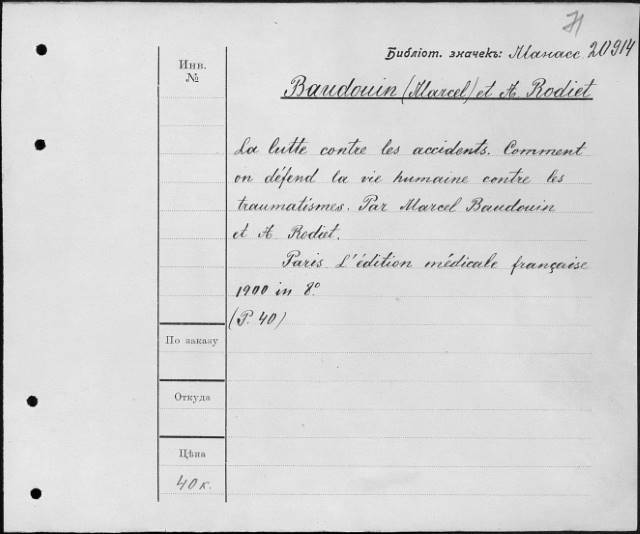 Л
Библіот. значекъ: Манасс 20914
Инв.
№
Baudouin (Marcel) et A. Rodiet
La lutte contre les accidents. Comment
on défend la vie humaine contre les
traumatismes. Par Marcel Baudouin
et A Rodiet.
Paris L'édition médicale française
1900 in 8°
(P. 40)
По заказу
Откуда
Цѣна
40 к.